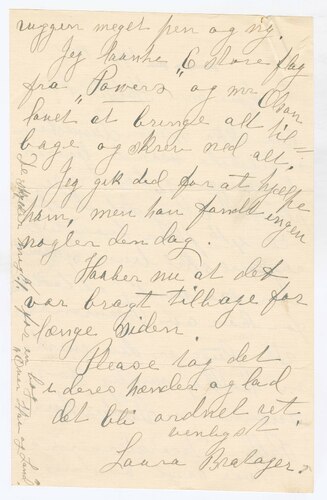 vuggen meget pen og ny.
Jeg laante 6 store flag
fra "Powers" og mr Olson
lovet at bringe alt til-
bage og skrev ned alt.
Jeg gik did for at hjelpe
ham, men han fandt ingen
nøgler den dag.
Haaber nu at det
var bragt tilbage for
længe siden.
Please tag det
i deres hænder og lad
det bli ordnet ret.
venligst
Laura Bratager.